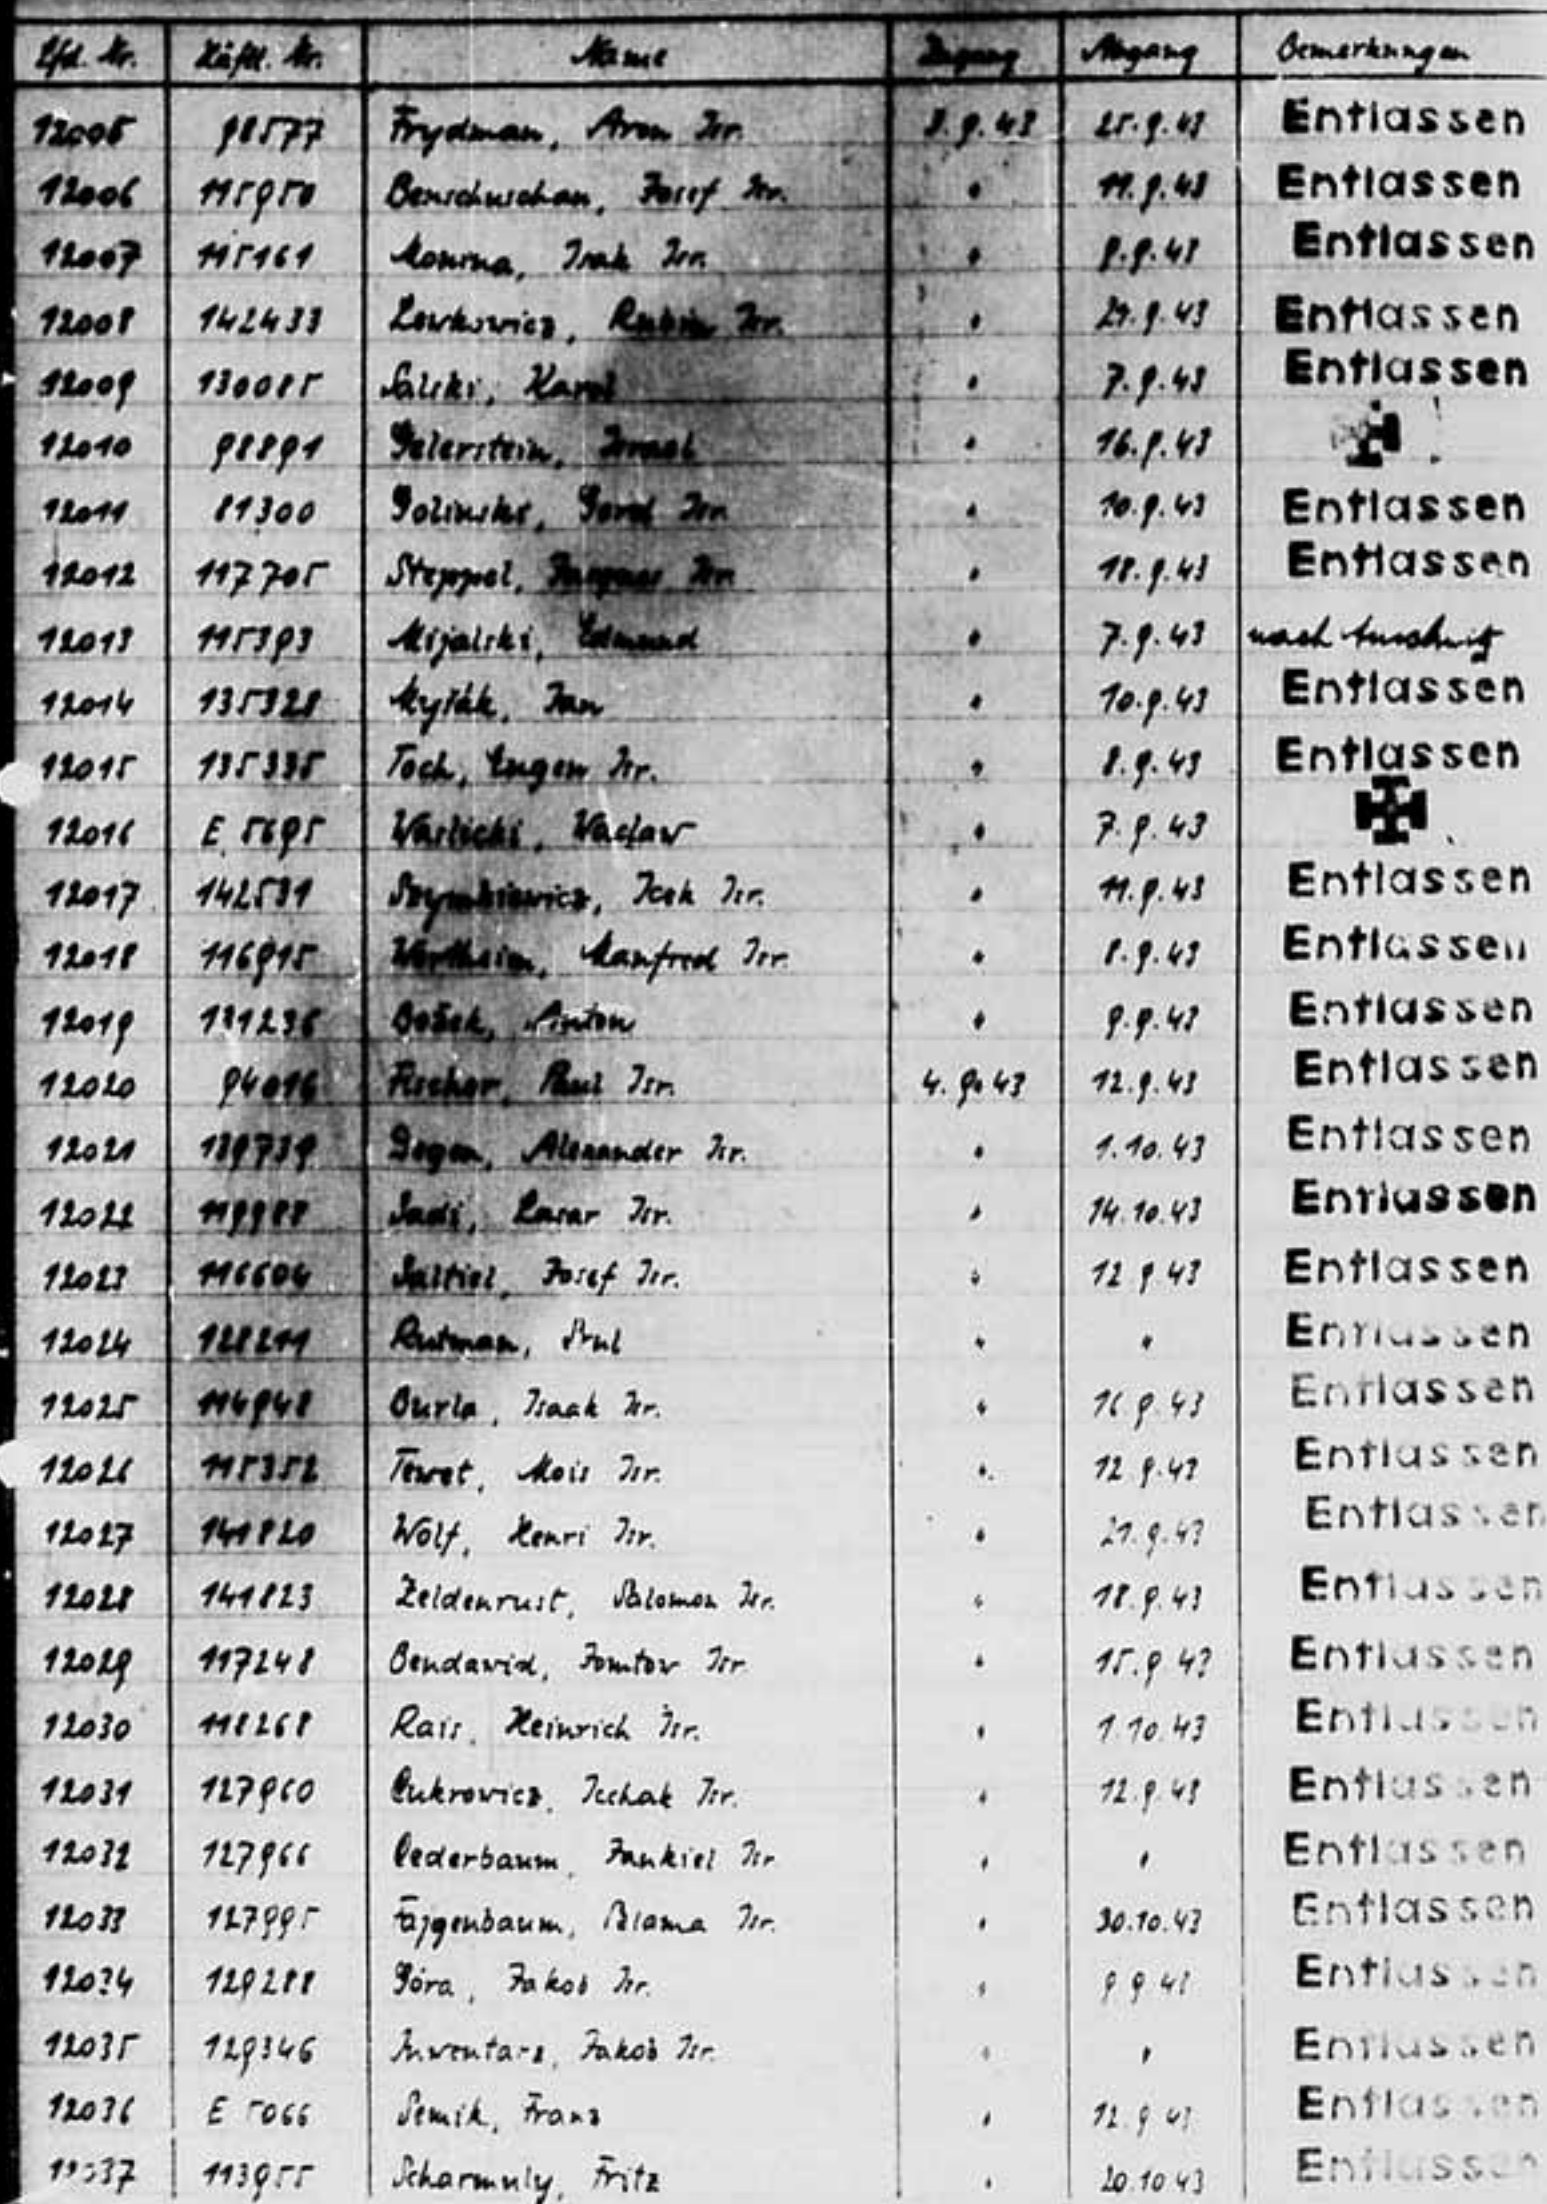 Lfd. Nr. Häftl. Nr. Name Zugang Abgang Bemerkungen
12005 98577 Frydman, Aron Isr. 3.9.43 25.9.43 Entlassen
12006 115950 Benschuschan, Josef Isr. " 11.9.43 Entlassen
12007 115161 Isak Isr. " 9.9.43 Entlassen
12008 142433 Lewkowicz, Rubin Isr. " 9.43 Entlassen
12009 130085 Salski, Karol " 7.9.43 Entlassen
12010 98891 Gelerstein, Israel " 16.9.43
12011 81300 Golinski, Isr. " 10.9.43 Entlassen
12012 117705 Steppel, Isr. " 18.9.43 Entlassen
12013 115393 Mijalski, Edmund " 7.9.43 nach Auschwitz
12014 135328 Jan " 10.9.43 Entlassen
12015 135335 Toch, Eugen Isr. " 8.9.43 Entlassen
12016 E 5695 Waslicki, Wacław " 7.9.43
12017 142531 Szymkiewicz, Icek Isr. " 11.9.43 Entlassen
12018 116915 Wertheim, Manfred Isr. " 8.9.43 Entlassen
12019 131236 Božek, Anton " 9.9.43 Entlassen
12020 94016 Fischer, Paul Isr. 4.9.43 12.9.43 Entlassen
12021 139739 Degen, Alexander Isr. " 1.10.43 Entlassen
12022 Sadi, Lasar Isr. " 14.10.43 Entlassen
12023 116604 Saltiel, Josef Isr. " 12.9.43 Entlassen
12024 128211 Rutman, Srul " " Entlassen
12025 114948 Burla, Isaak Isr. " 16.9.43 Entlassen
12026 115352 Tewet, Mois Isr. " 12.9.43 Entlassen
12027 141820 Wolf, Henri Isr. " 21.9.43 Entlassen
12028 141823 Zeldenrust, Salomon Isr. " 18.9.43 Entlassen
12029 117248 Bendavid, Jomtow Isr. " 15.9.43 Entlassen
12030 118268 Rais, Heinrich Isr. " 1.10.43 Entlassen
12031 127960 Cukrowicz, Icchak Isr. " 12.9.43 Entlassen
12032 127966 Cederbaum, Jankiel Isr. " " Entlassen
12033 127995 Fajgenbaum, Slama Isr. " 30.10.43 Entlassen
12034 129288 Góra, Jakob Isr. " 9.9.43 Entlassen
12035 129346 Inwentarz, Jakob Isr. " " Entlassen
12036 E 5066 Semik, Franz " 12.9.43 Entlassen
12037 113955 Scharmuly, Fritz " 20.10.43 Entlassen